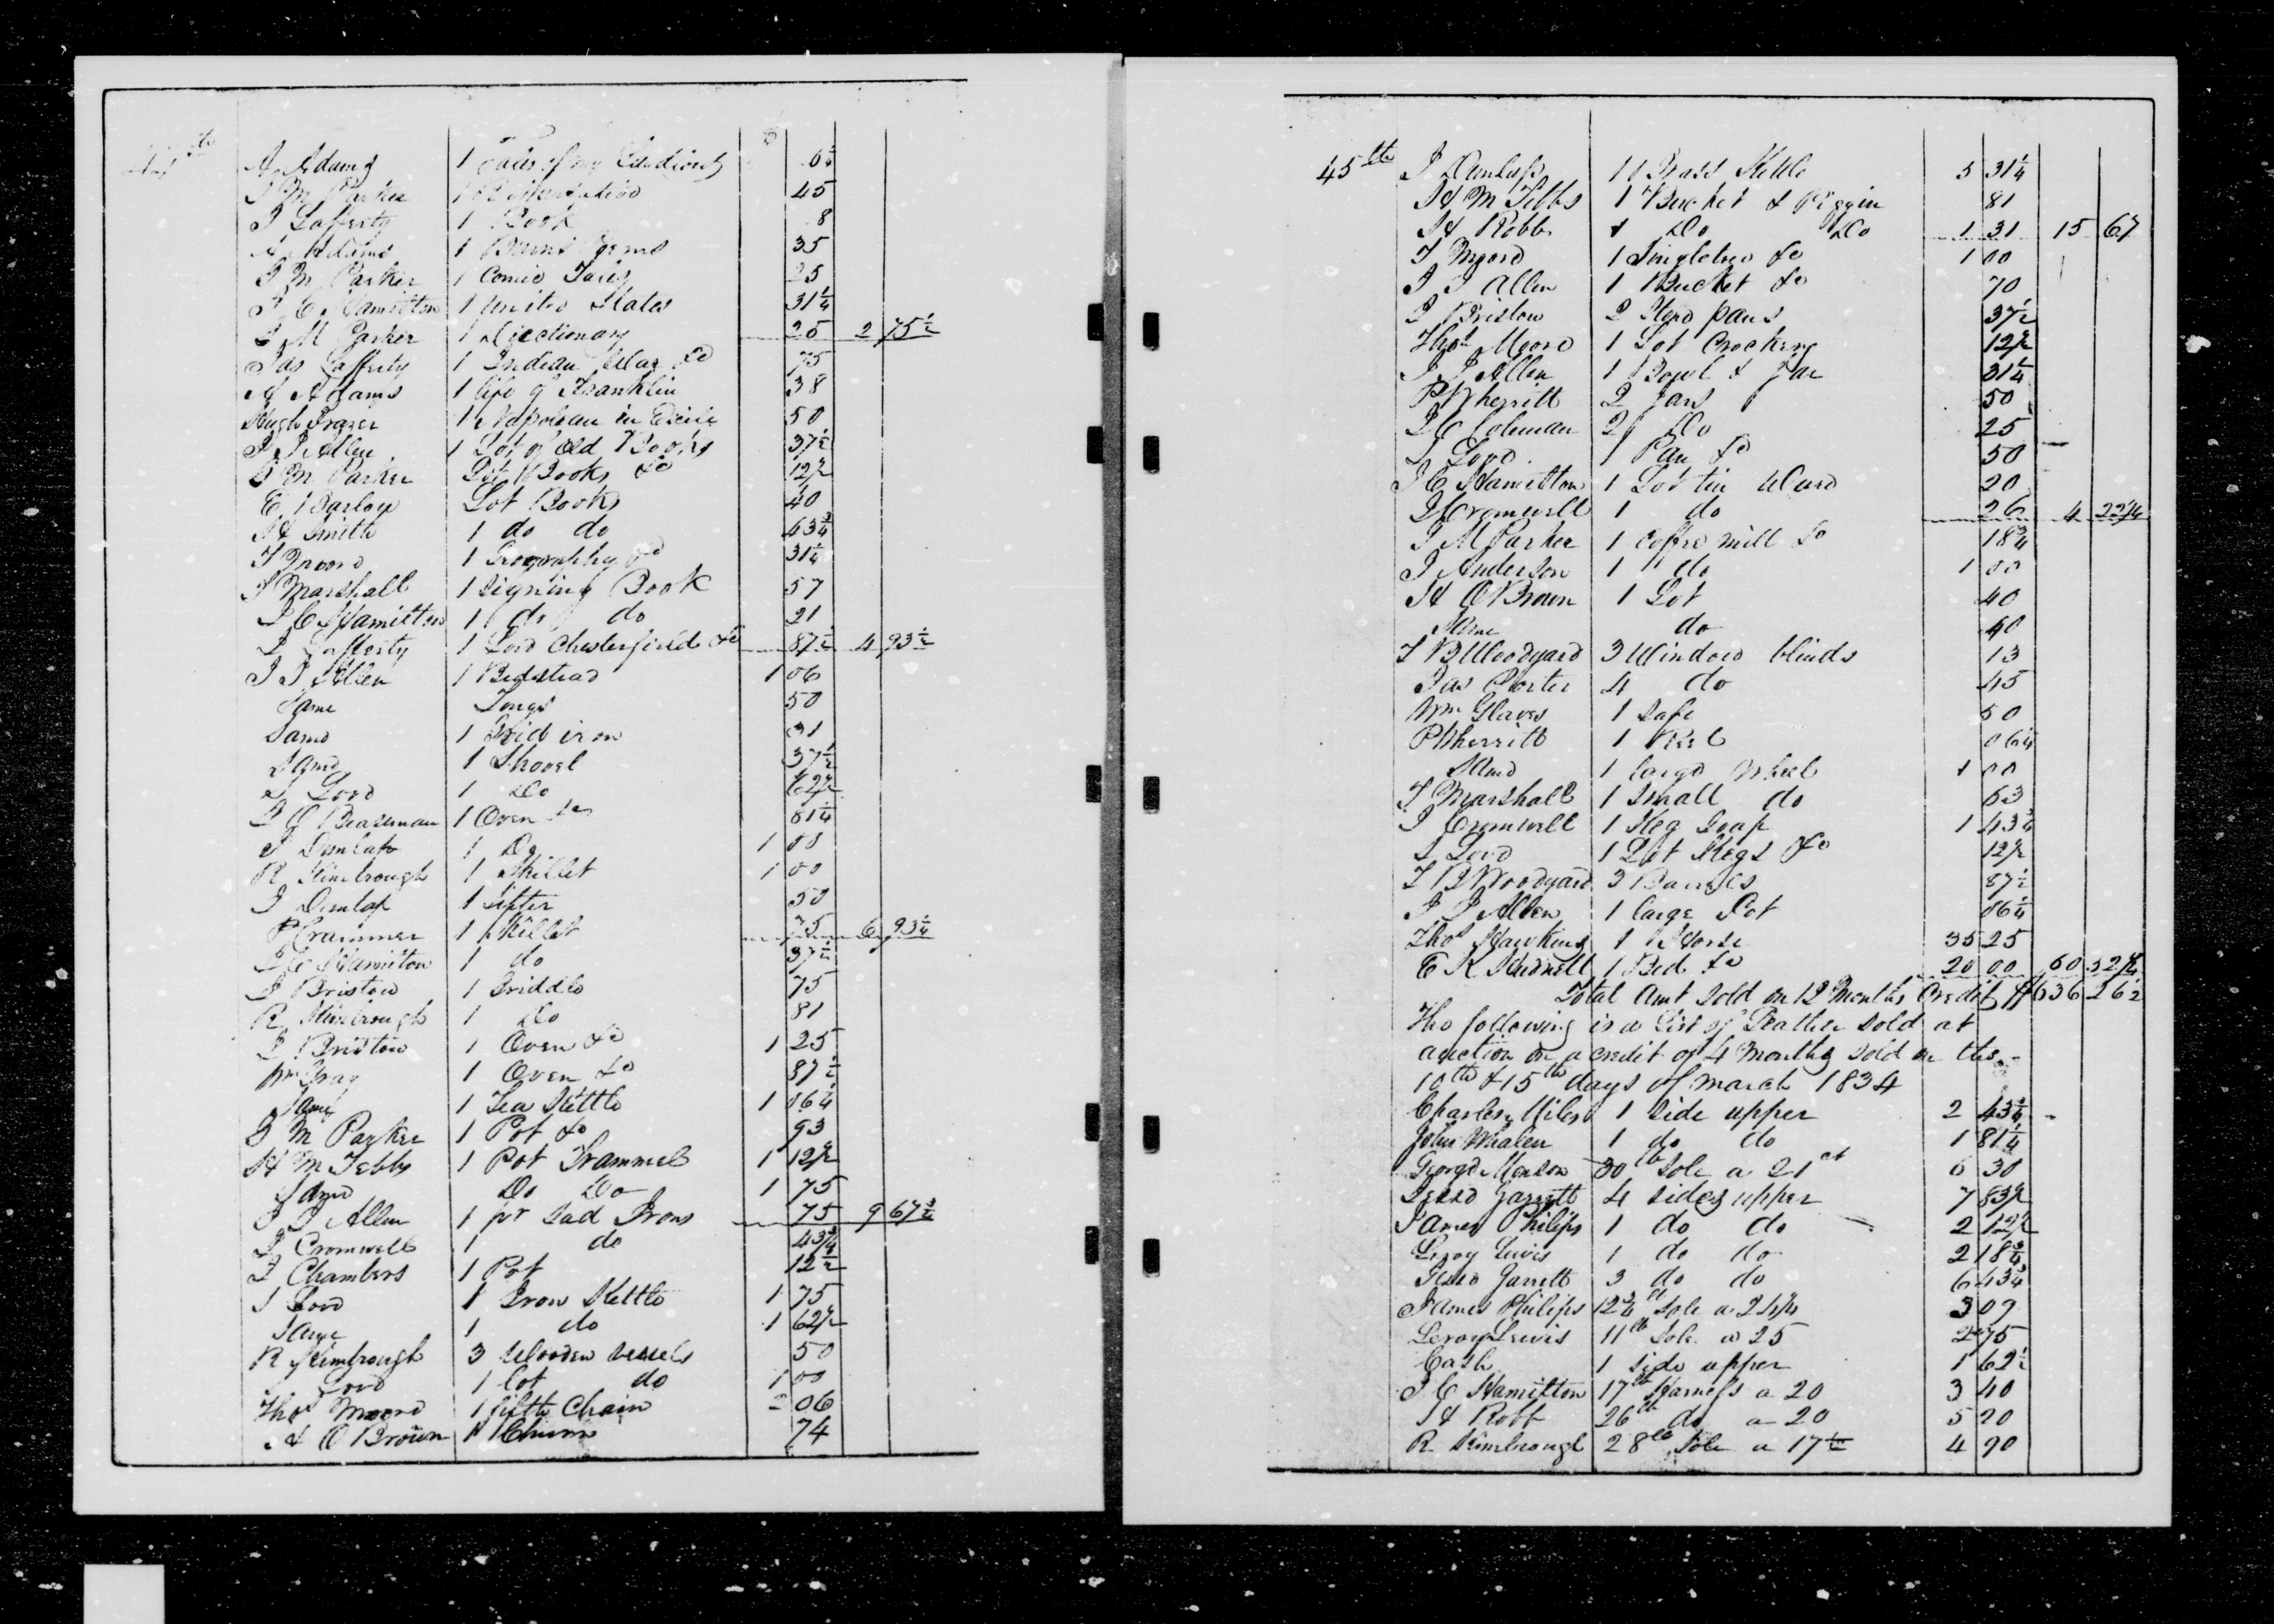 44th
A Adams 1 Tales of my 6 1/4
J M Parker 1 45
J Lafferty 1 Book 8
A Adams 1 Burns Poems 35
J M Parker 1 Comic Tales 25
J C Hamilton 1 United States 31 1/4
J M Parker 1 Dictionary 25 2 75 1/2
Jas Lafferty 1 Indian War &c 75
A Adams 1 life of Franklin 38
Hugh Frazer 1 Napoleon in Exile 50
J J Allen 1 Lot of old Books 37 1/2
J M Parker Lot Books &c 12 1/2
E Barlow Lot Books 40
H Smith 1 do do 43 3/4
T Moore 1 Geography &c 31 1/4
T Marshall 1 Signing Book 57
J C Hamilton 1 do do 21
J Lafferty 1 Lord Chesterfield &c 87 1/2 4 93 1/2
J J Allen 1 Bedstead 1 06
Same Tongs 50
Same 1 Grid iron 31
Same 1 Shovel 37 1/2
J Lord 1 Do 62 1/2
J G Beaseman 1 Oven &c 81 1/4
J Dunlap 1 Do 1 00
R Kimbrough 1 Skillet 1 00
J Dunlap 1 Sifter 50
P Crammer 1 Skillet 75 6 93 1/4
J C Hamilton 1 do 37 1/2
J Bristow 1 Griddle 75
R Kimbrough 1 Do 81
J Bristow 1 Oven &c 1 25
Wm Gray 1 Oven &c 87 1/2
Same 1 Tea Kettle 1 06 1/4
J M Parker 1 Pot &c 93
H M Tebbs 1 Pot Trammel 1 12 1/2
Same Do Do 1 75
J J Allen 1 pr Sad Irons 75 9 67 3/4
J Cromwell 1 do 43 3/4
J Chambers 1 Pot 12 1/2
J Lord 1 Iron Kettle 1 75
Same 1 do 1 62 1/2
R Kimbrough 3 Wooden vessels 50
Lord 1 lot do 1 00
Thos Moore 1 fifth Chain 2 06
H O Brown 1 Churn 74
45th J Dunlap 1 Brass Kettle 5 31 1/4
H M Tebbs 1 Bucket & Piggin 81
H Robb 1 Do Do 1 31 15 67
T Moore 1 Singletree &c 1 00
J J Allen 1 Bucket &c 70
J Bristow 2 Stew pans 37 1/2
Thos Moore 1 Lot Crockery 12 1/2
J J Allen 1 Bowl & Jar 31 1/4
P Wherritt 2 Jars 50
J C Coleman 2 Do 25
J Lord 1 Pan &c 50
J C Hamilton 1 Lot tin Ware 20
J Cromwell 1 do 26 4 22 1/4
J M Parker 1 Coffee mill &c 18 3/4
J Anderson 1 do 1 00
H O Brown 1 Lot 40
Same do 40
T B Woodyard 3 Window blinds 13
Jas Porter 4 do 45
Wm Glaves 1 Safe 50
P Wherritt 1 Reel 06 1/4
Same 1 large Wheel 1 00
T Marshall 1 Small do 63
J Cromwell 1 Keg Soap 1 43 3/4
J Lord 1 Lot Kegs &c 12 1/2
T B Woodyard 3 Barrels 87 1/2
J J Allen 1 large Pot 06 1/4
Thos Hawkins 1 Horse 35 25
E K 1 Bed &c 20 00 60 32 1/4
Total Amt Sold on 12 Months Credit $ 636 26 1/2
The following is a List of Leather sold at
auction on a credit of 4 Months sold on the
10th & 15th days of March 1834
Charles Miles 1 side upper 2 43 3/4
John Whalen 1 do do 1 81 1/4
George Menson 30 lb Sole a 21 ct 6 30
Jesse Garrett 4 sides upper 7 83 1/2
James Philips 1 do do 2 12 1/2
Leroy Lewis 1 do do 2 18 3/4
Jesse Garrett 3 do do 6 43 3/4
James Philips 12 3/4 lb Sole a 24 1/2 3 09
Leroy Lewis 11 lb Sole a 25 2 75
Cash 1 side upper 1 62 1/2
J C Hamilton 17 lb Harness a 20 3 40
H Robb 26 lb do a 20 5 20
R Kimbrough 28 lb Sole a 17 1/2 4 90